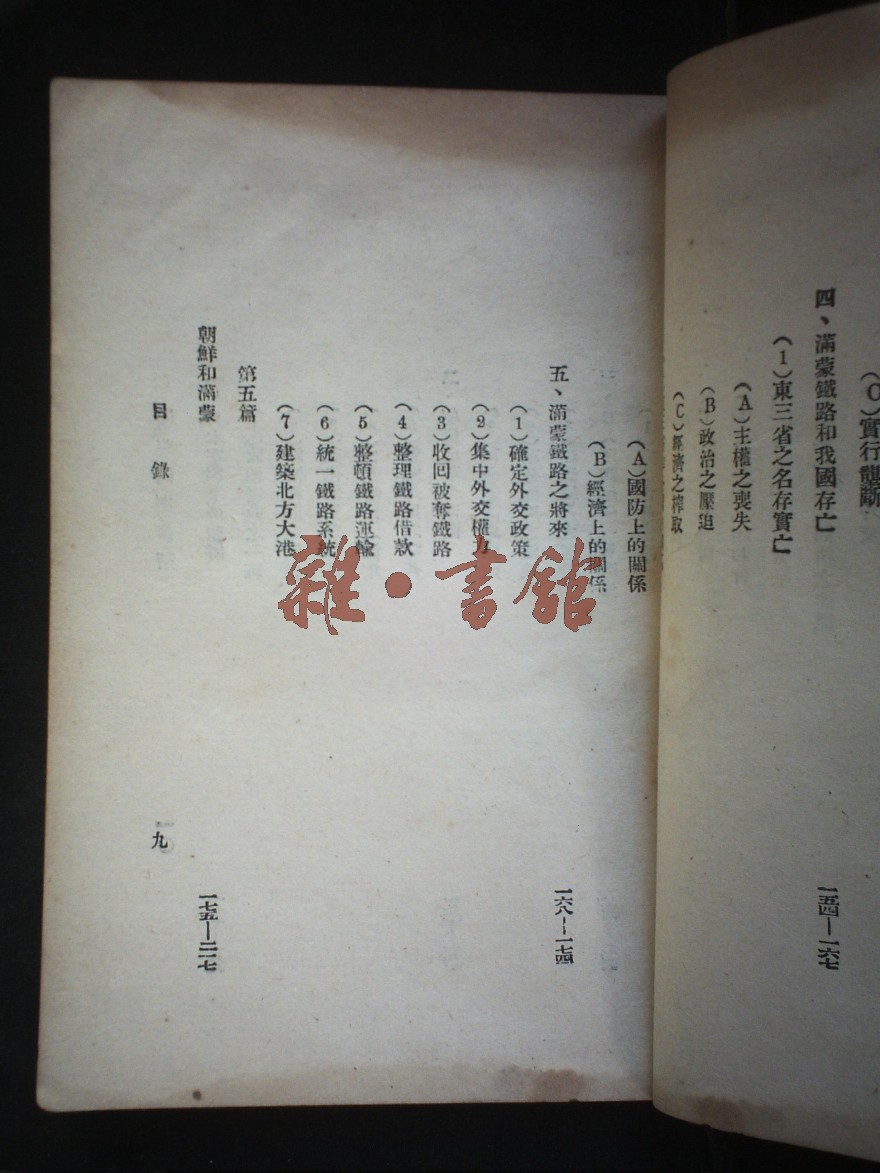 (C)實行壟斷
四、滿蒙鐵路和我國存亡 一五四—一六七
(1)東三省之名存實亡
(A)主權之喪失
(B)政治之壓迫
(C)經濟之榨取
(A)國防上的關係
(B)經濟上的關係
五、滿蒙鐵路之將來 一六八—一七四
(1)確定外交政策
(2)集中外交權力
(3)收回被奪鐵路
(4)整理鐵路借款
(5)整頓鐵路運輸
(6)統一鐵路系統
(7)建築北方大港
第五篇
朝鮮和滿蒙 一七五—二一七
目錄 九
雜·書館